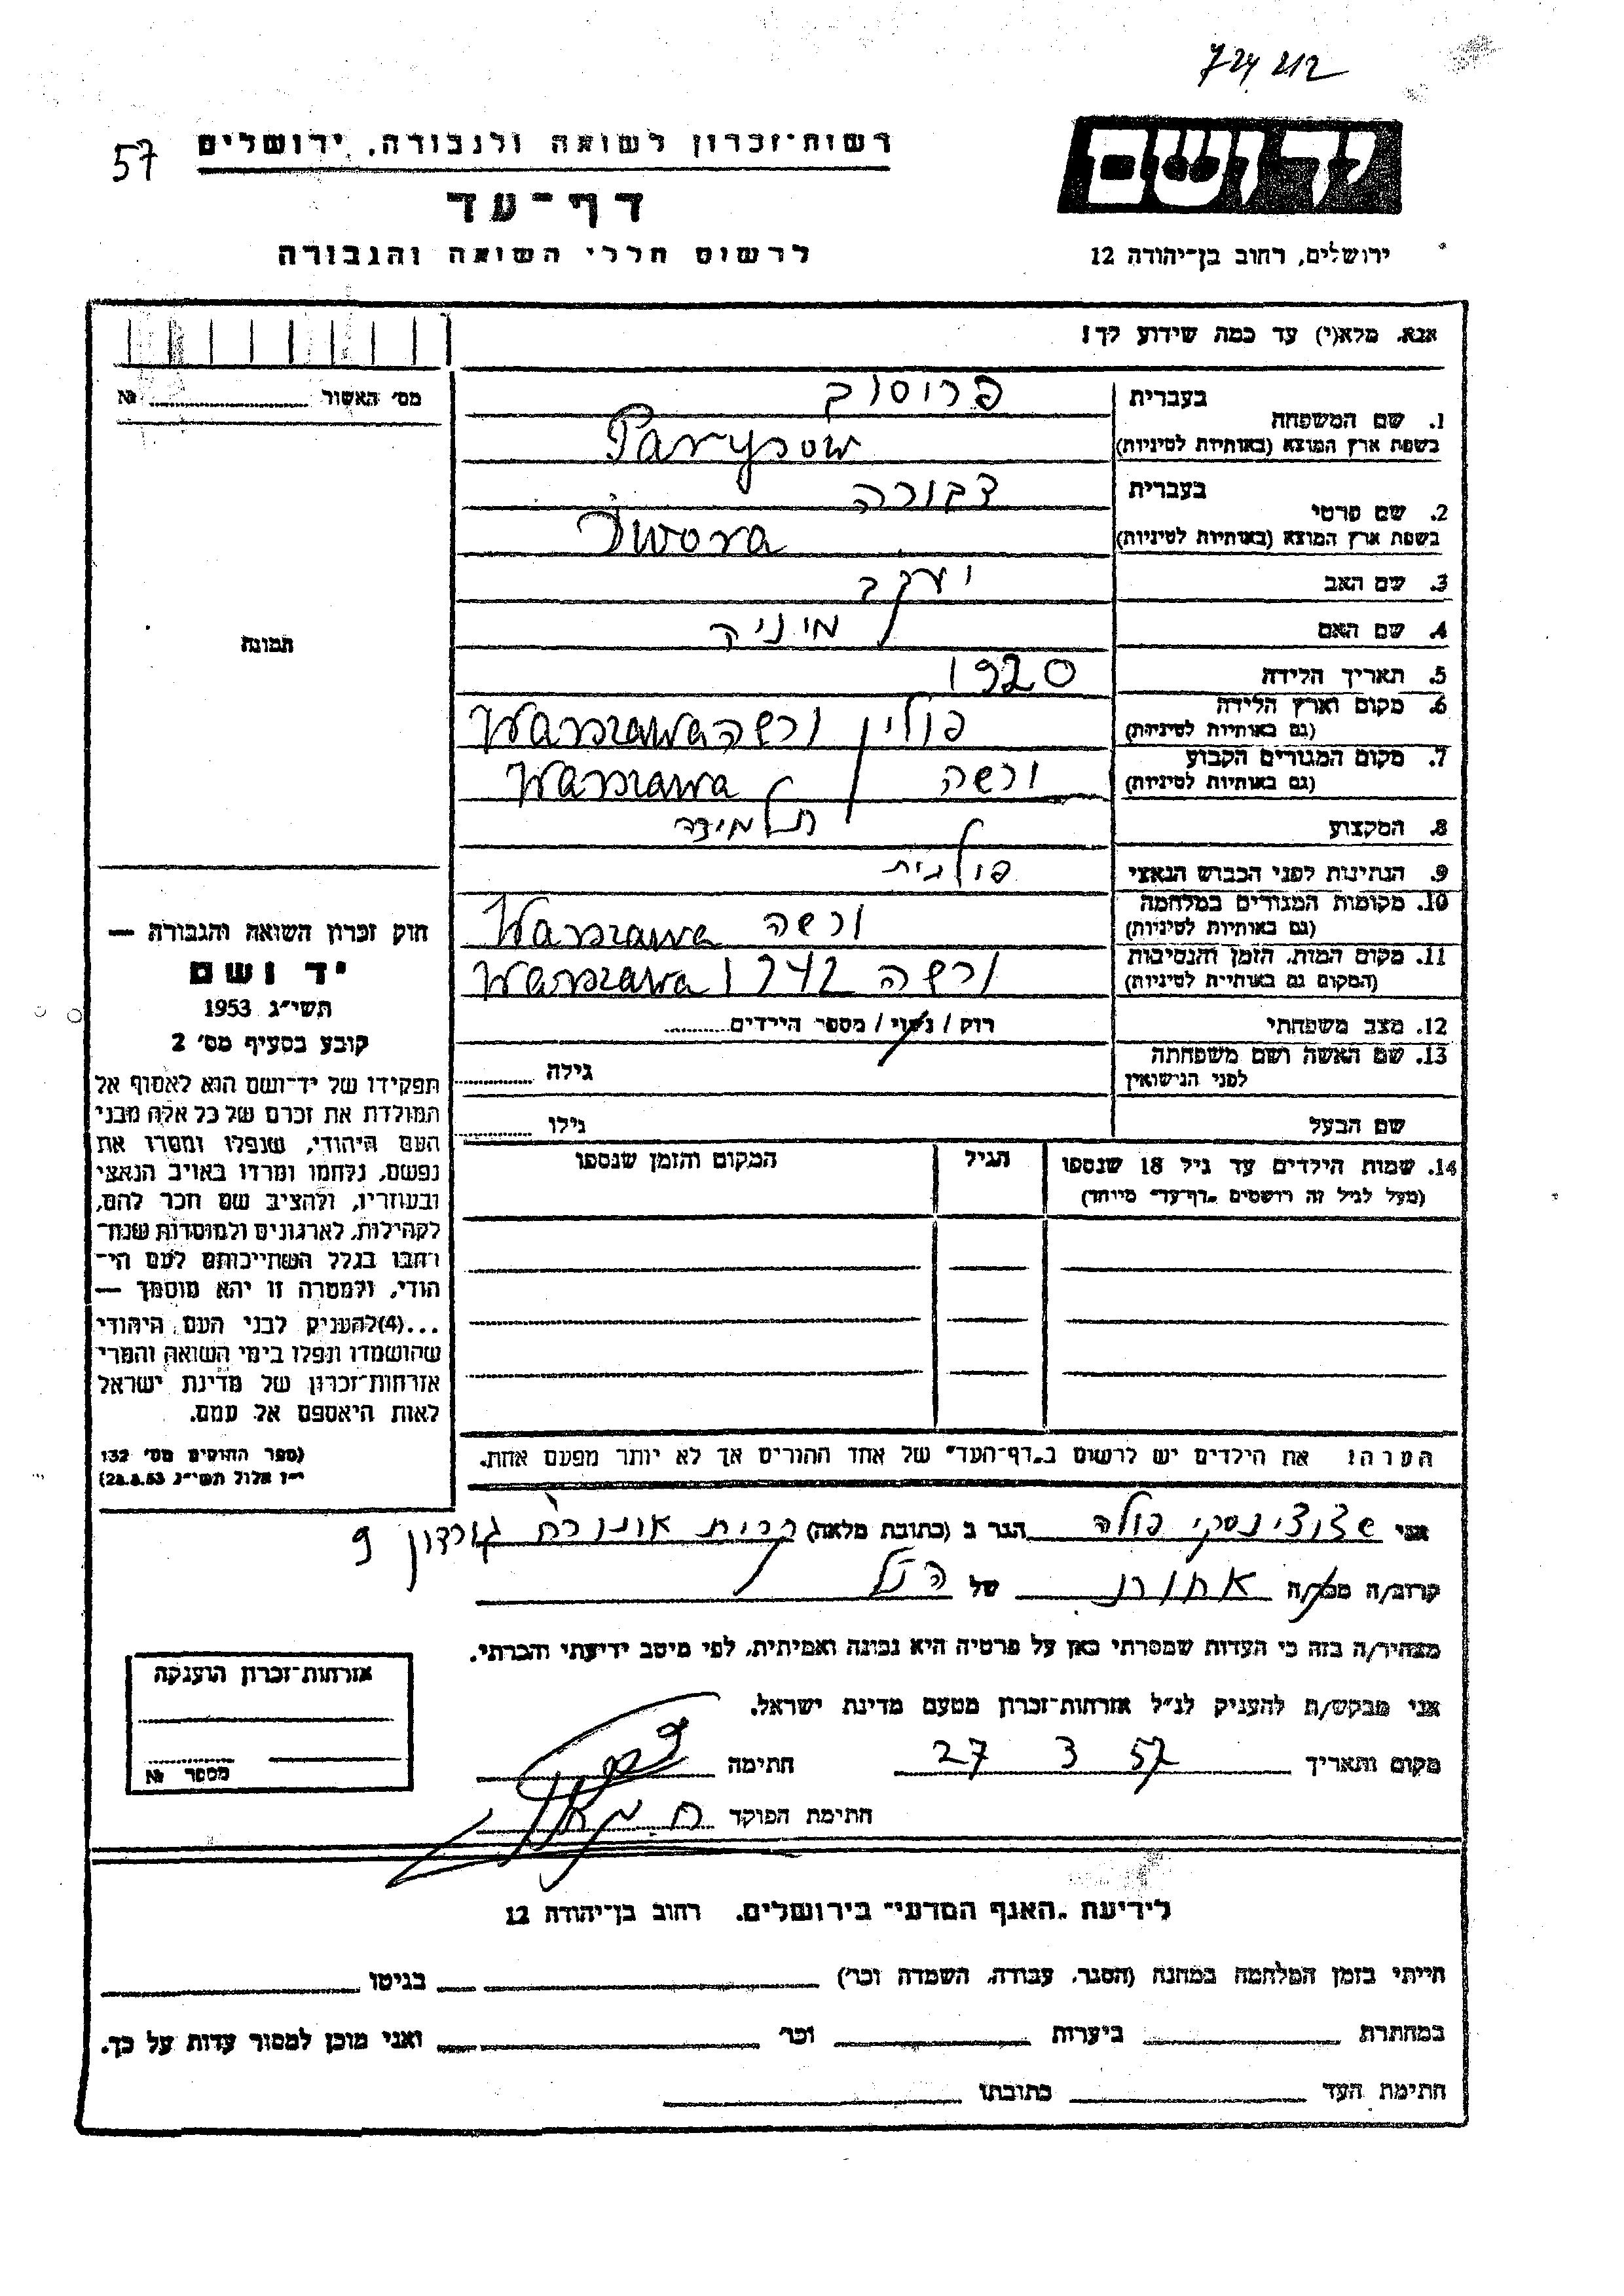 7 24 212
57
רשות־זכרון לשואה ולגבורה, ירושלים
יד ושם
דף־עד
לרשום חללי השואה והגבורה
ירושלים, רחוב בן־יהודה 12
אנא, מלא(י) עד כמה שידוע לך!
מס׳ האשור № 
1. שם המשפחה
בעברית פרוסוב
בשפת ארץ המוצא (באותיות לטיניות) Parysow
2. שם פרטי
בעברית דבורה
בשפת ארץ המוצא (באותיות לטיניות) Dwora
3. שם האב יעקב
4. שם האם
5. תאריך הלידה 1920
6. מקום וארץ הלידה (גם באותיות לטיניות) פולין ורשה Warszawa
7. מקום המגורים הקבוע (גם באותיות לטיניות) ורשה Warszawa
8. המקצוע תלמידה
9. הנתינות לפני הכבוש הנאצי פולנית
10. מקומות המגורים במלחמה (גם באותיות לטיניות) ורשה Warszawa
11. מקום המות, הזמן והנסיבות (המקום גם באותיות לטיניות) ורשה 1942 Warszawa
12. מצב משפחתי רוק / נשוי / מספר הילדים
13. שם האשה ושם משפחתה לפני הנישואין גילה
שם הבעל גילו
14. שמות הילדים עד גיל 18 שנספו
(מעל לגיל זה רושמים „דף־עד״ מיוחד)
הגיל
המקום והזמן שנספו
הערה: את הילדים יש לרשום ב„דף־העד״ של אחד ההורים אך לא יותר מפעם אחת.
תמונה
חוק זכרון השואה והגבורה —
יד ושם
תשי״ג 1953
קובע בסעיף מס׳ 2
תפקידו של יד־ושם הוא לאסוף אל
המולדת את זכרם של כל אלה מבני
העם היהודי, שנפלו ומסרו את
נפשם, נלחמו ומרדו באויב הנאצי
ובעוזריו, ולהציב שם וזכר להם,
לקהילות, לארגונים ולמוסדות שנח־
רבו בגלל השתייכותם לעם הי־
הודי, ולמטרה זו יהא מוסמך —
...(4)להעניק לבני העם היהודי
שהושמדו ונפלו בימי השואה והמרי
אזרחות־זכרון של מדינת ישראל
לאות היאספם אל עמם.
(ספר החוקים מס׳ 132
י״ז אלול תשי״ג 28.8.53)
אני פולה הגר ב (כתובת מלאה) קרית אונו רח גורדון 9
קרוב/ה מכר/ה אחות של הנ״ל
מצהיר/ה בזה כי העדות שמסרתי כאן על פרטיה היא נכונה ואמיתית, לפי מיטב ידיעתי והכרתי.
אני מבקש/ת להעניק לנ״ל אזרחות־זכרון מטעם מדינת ישראל.
מקום ותאריך 27 3 57 חתימה
חתימת הפוקד
אזרחות־זכרון הוענקה
מספר №
לידיעת „האגף המדעי״ בירושלים, רחוב בן־יהודה 12
הייתי בזמן המלחמה במחנה (הסגר, עבודה, השמדה וכו׳) בגיטו
במחתרת ביערות וכו׳ ואני מוכן למסור עדות על כך.
חתימת העד כתובתו